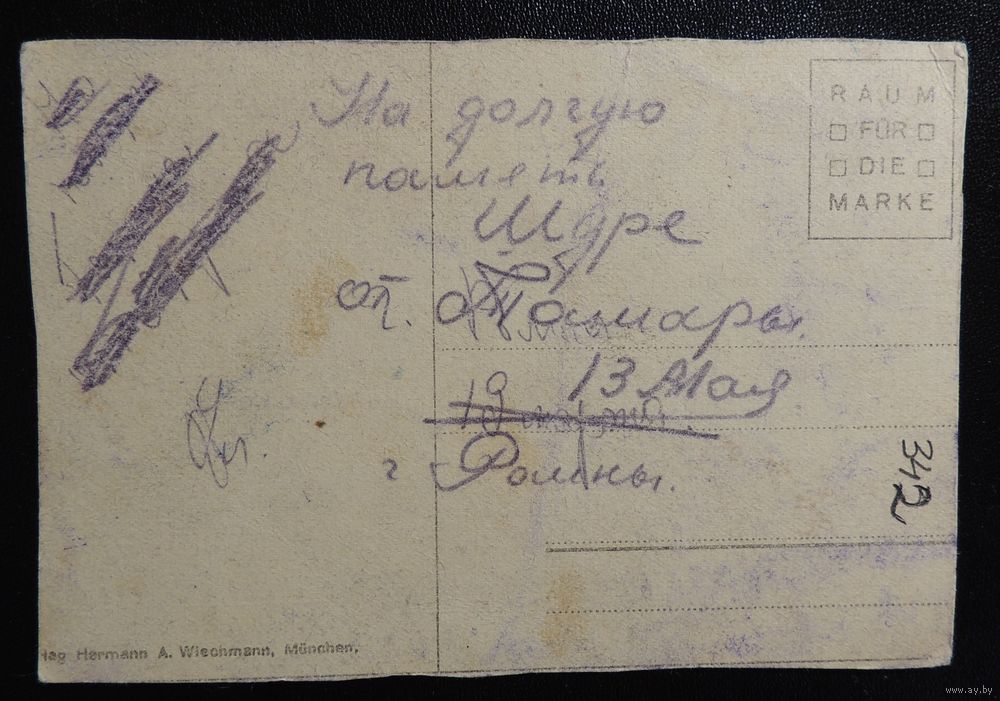 На долгую
паметь
Шуре
от. Тамары.
13 Мая
19
г Ромны.
RAUM
FÜR
DIE
MARKE
342
lag Hermann A. Wiechmann, München.
www.ay.by